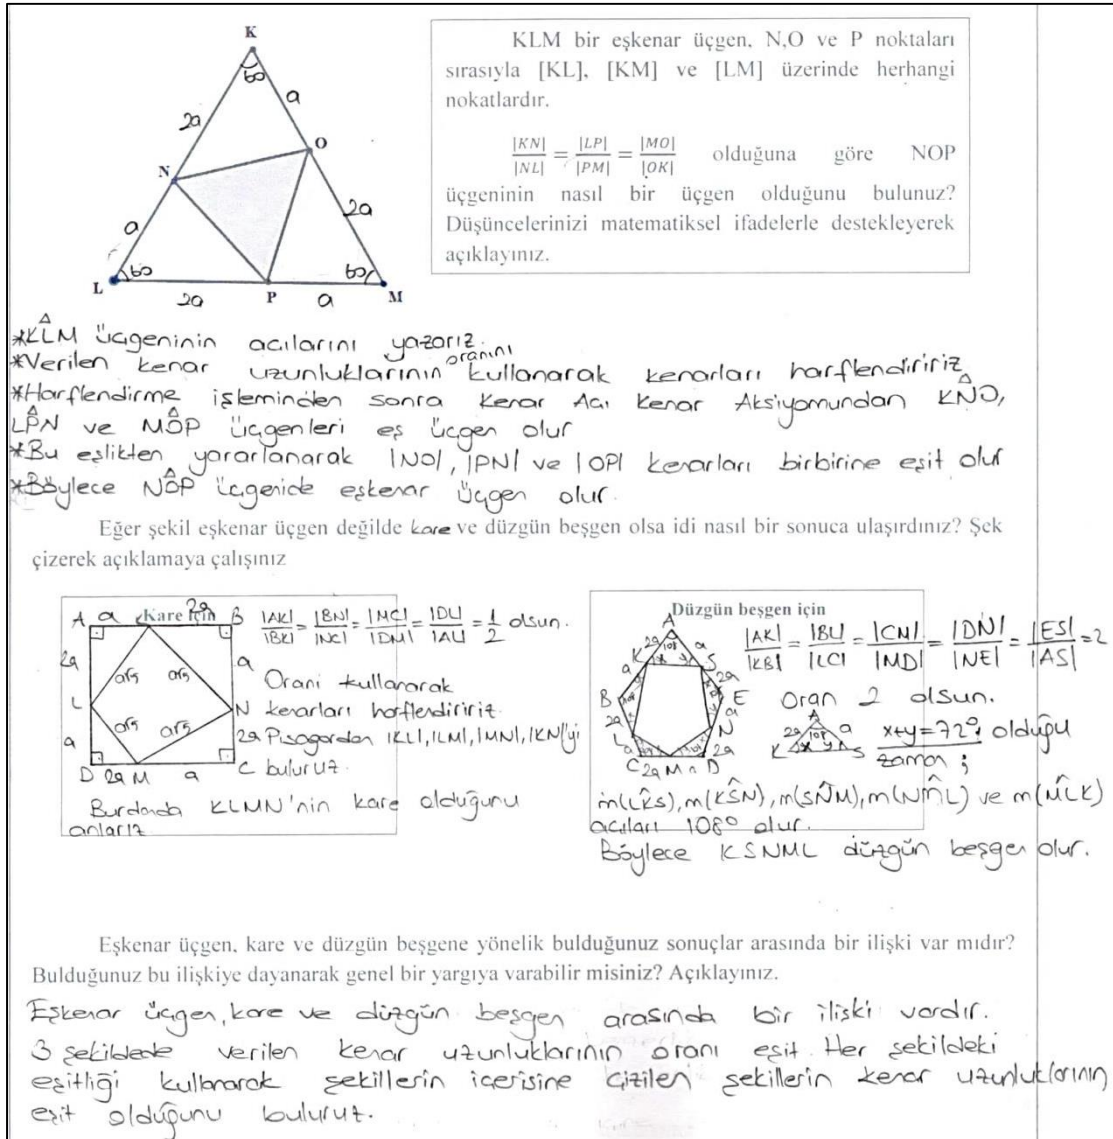 K
60
2a
a
N
O
a
2a
60
60
L
2a
P
a
M
KLM bir eşkenar üçgen, N,O ve P noktaları
sırasıyla [KL], [KM] ve [LM] üzerinde herhangi
nokatlardır.
|KN|/|NL| = |LP|/|PM| = |MO|/|OK| olduğuna göre NOP
üçgeninin nasıl bir üçgen olduğunu bulunuz?
Düşüncelerinizi matematiksel ifadelerle destekleyerek
açıklayınız.
*KLM üçgeninin açılarını yazarız.
*Verilen kenar uzunluklarının oranını kullanarak kenarları harflendiririz
*Harflendirme işleminden sonra Kenar Açı Kenar Aksiyomundan KNO,
LPN ve MOP üçgenleri eş üçgen olur
*Bu eşlikten yararlanarak |NO|, |PN| ve |OP| kenarları birbirine eşit olur
*Böylece NOP üçgenide eşkenar üçgen olur.
Eğer şekil eşkenar üçgen değilde kare ve düzgün beşgen olsa idi nasıl bir sonuca ulaşırdınız? Şek
çizerek açıklamaya çalışınız
Kare için
A a 2a B
|AK|/|BK| = |BN|/|NC| = |MC|/|DM| = |DL|/|AL| = 1/2 olsun.
2a
a√5 a√5
a
Oranı kullanarak
L
N kenarları harflendiririz
a√5 a√5
a
2a Pisagordan |KL|, |LM|, |MN|, |KN|'yi
D 2a M a C buluruz.
Burdanda KLMN'nin kare olduğunu
anlarız
Düzgün beşgen için
A
|AK|/|KB| = |BL|/|LC| = |CM|/|MD| = |DN|/|NE| = |ES|/|AS| = 2
2a 108 a
K x y S
a 2a
B E
Oran 2 olsun.
2a a
L N
a 2a
C 2a M a D
A
2a 108 a
K x y S
x+y=72° olduğu
zaman ;
m(LKS), m(KSN), m(SNM), m(NML) ve m(MLK)
açıları 108° olur.
Böylece KSNML düzgün beşgen olur.
Eşkenar üçgen, kare ve düzgün beşgene yönelik bulduğunuz sonuçlar arasında bir ilişki var mıdır?
Bulduğunuz bu ilişkiye dayanarak genel bir yargıya varabilir misiniz? Açıklayınız.
Eşkenar üçgen, kare ve düzgün beşgen arasında bir ilişki vardır.
3 şekildede verilen kenar uzunluklarının oranı eşit. Her şekildeki
eşitliği kullanarak şekillerin içerisine çizilen şekillerin kenar uzunluklarının
eşit olduğunu buluruz.